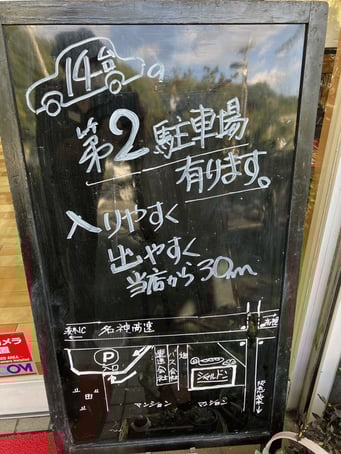 14台
第2駐車場
有ります。
入りやすく
出やすく
当店から30m
名神高速
P
入口
運送会社
バス会社
シャルドン
田
マンション
マンション
カメラ